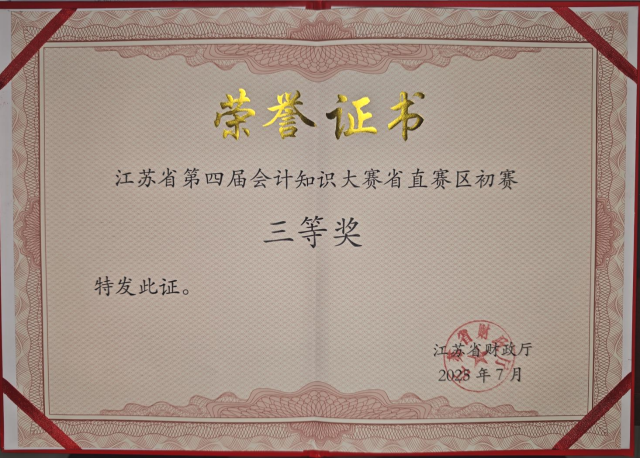 荣誉证书
江苏省第四届会计知识大赛省直赛区初赛
三等奖
特发此证。
江苏省财政厅
2023 年 7 月